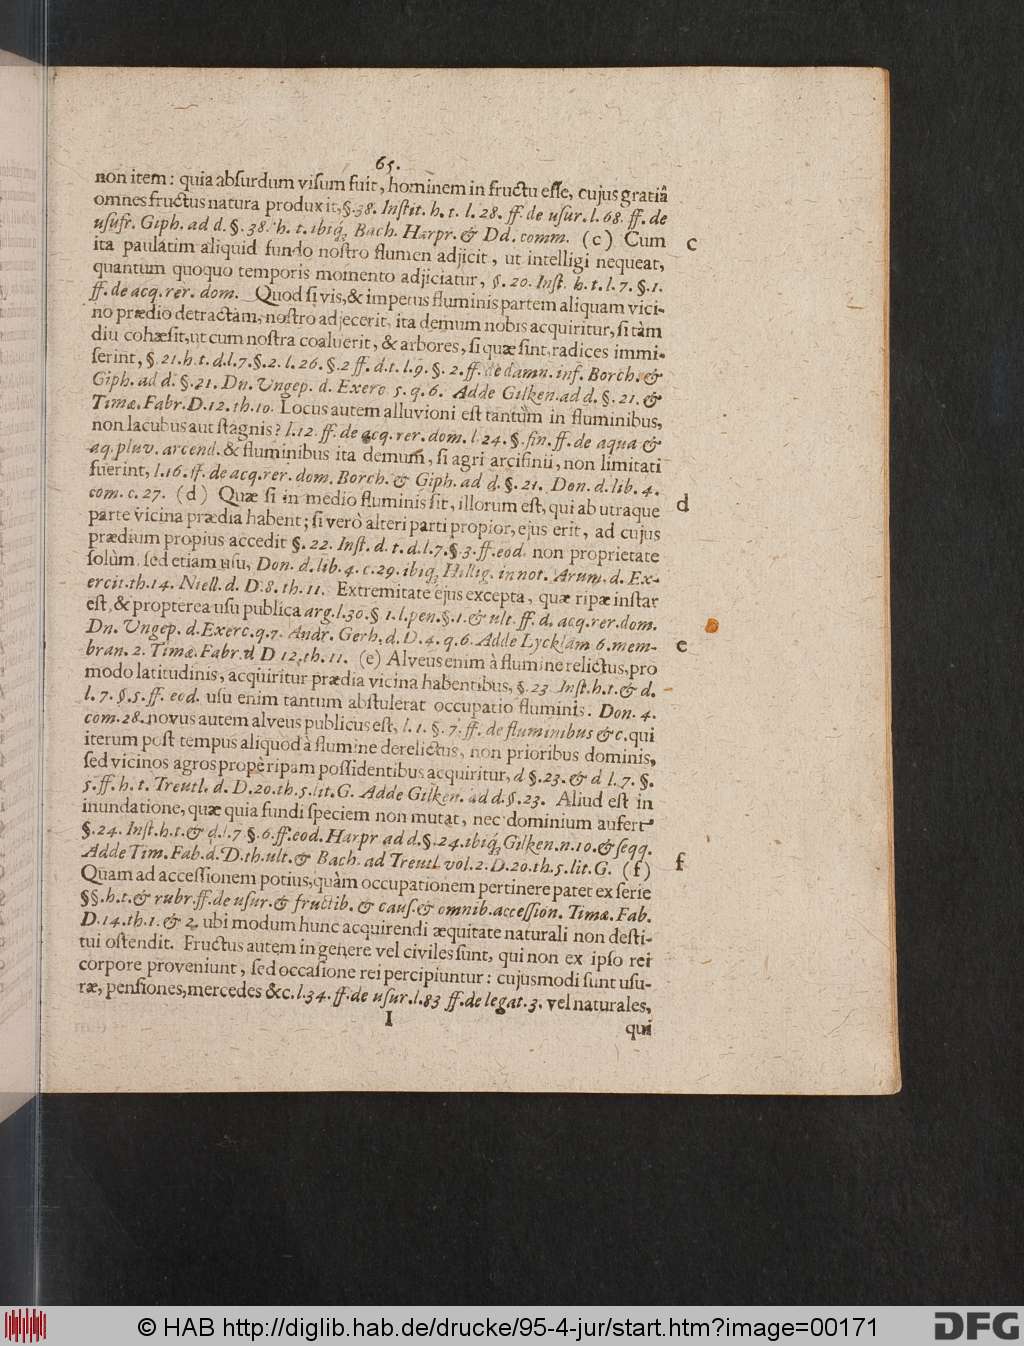 65.
non item: quia absurdum visum fuit, hominem in fructu esse, cujus gratiâ
omnes fructus natura produxit, §. 38. Instit. h. t. l. 28. ff. de usur. l. 68. ff. de
usufr. Giph. ad d. §. 38. h. t. ibiq; Bach. Harpr. & Dd. comm. (c) Cum
c
ita paulatim aliquid fundo nostro flumen adjicit, ut intelligi nequeat,
quantum quoquo temporis momento adjiciatur, §. 20. Inst. h. t. l. 7. §. 1.
ff. de acq. rer. dom. Quod si vis, & impetus fluminis partem aliquam vici-
no prædio detractam, nostro adjecerit, ita demum nobis acquiritur, si tàm
diu cohæsit, ut cum nostra coaluerit, & arbores, si quæ sint, radices immi-
serint, §. 21. h. t. d. l. 7. §. 2. l. 26. §. 2 ff. d. t. l. 9. §. 2. ff. de damn. inf. Borch. &
Giph. ad d. §. 21. Dn. Ungep. d. Exerc 5. q. 6. Adde Gilken. ad d. §. 21. &
Timæ. Fabr. D. 12. th. 10. Locus autem alluvioni est tantùm in fluminibus,
non lacubus aut stagnis? l. 12. ff. de acq. rer. dom. l 24. §. fin. ff. de aqua &
aq. pluv. arcend. & fluminibus ita demum, si agri arcifinii, non limitati
fuerint, l. 16. ff. de acq. rer. dom. Borch. & Giph. ad d. §. 21. Don. d. lib. 4.
com. c. 27. (d) Quæ si in medio fluminis sit, illorum est, qui ab utraque
d
parte vicina prædia habent; si verò alteri parti propior, ejus erit, ad cujus
prædium propius accedit §. 22. Inst. d. t. d. l. 7. § 3. ff. eod. non proprietate
solùm, sed etiam usu, Don. d. lib. 4. c. 29. ibiq; Hillig. in not. Arum. d. Ex-
ercit. th. 14. Niell. d. D. 8. th. 11. Extremitate ejus excepta, quæ ripæ instar
est, & propterea usu publica arg. l. 30. § 1. l. pen. §. 1. & ult. ff. d. acq. rer. dom.
Dn. Ungep. d. Exerc. q. 7. Andr. Gerh. d. D. 4. q. 6. Adde Lycklam 6. mem-
e
bran. 2. Timæ. Fabr. d D 12. th. 11. (e) Alveus enim à flumine relictus, pro
modo latitudinis, acquiritur prædia vicina habentibus, §. 23 Inst. h. t. & d.
l. 7. §. 5. ff. eod. usu enim tantum abstulerat occupatio fluminis. Don. 4.
com. 28. novus autem alveus publicus est, l. 1. §. 7. ff. de fluminibus & c. qui
iterum post tempus aliquod à flumine derelictus, non prioribus dominis,
sed vicinos agros propè ripam possidentibus acquiritur, d §. 23. & d l. 7. §.
5. ff. h. t. Treutl. d. D. 20. th. 5. lit. G. Adde Gilken. ad d. §. 23. Aliud est in
inundatione, quæ quia fundi speciem non mutat, nec dominium aufert
§. 24. Inst. h. t. & d. l. 7 §. 6. ff. eod. Harpr ad d. §. 24. ibiq; Gilken. n. 10. & seqq.
Adde Tim. Fab. d. D. th. ult. & Bach. ad Treutl vol. 2. D. 20. th. 5. lit. G. (f)
f
Quam ad accessionem potius, quàm occupationem pertinere patet ex serie
§§. h. t. & rubr. ff. de usur. & fructib. & caus. & omnib. accession. Timæ. Fab.
D. 14. th. 1. & 2. ubi modum hunc acquirendi æquitate naturali non desti-
tui ostendit. Fructus autem in genere vel civiles sunt, qui non ex ipso rei
corpore proveniunt, sed occasione rei percipiuntur: cujusmodi sunt usu-
ræ, pensiones, mercedes &c. l. 34. ff. de usur. l. 83 ff. de legat. 3. vel naturales,
I
qui
© HAB http://diglib.hab.de/drucke/95-4-jur/start.htm?image=00171
DFG